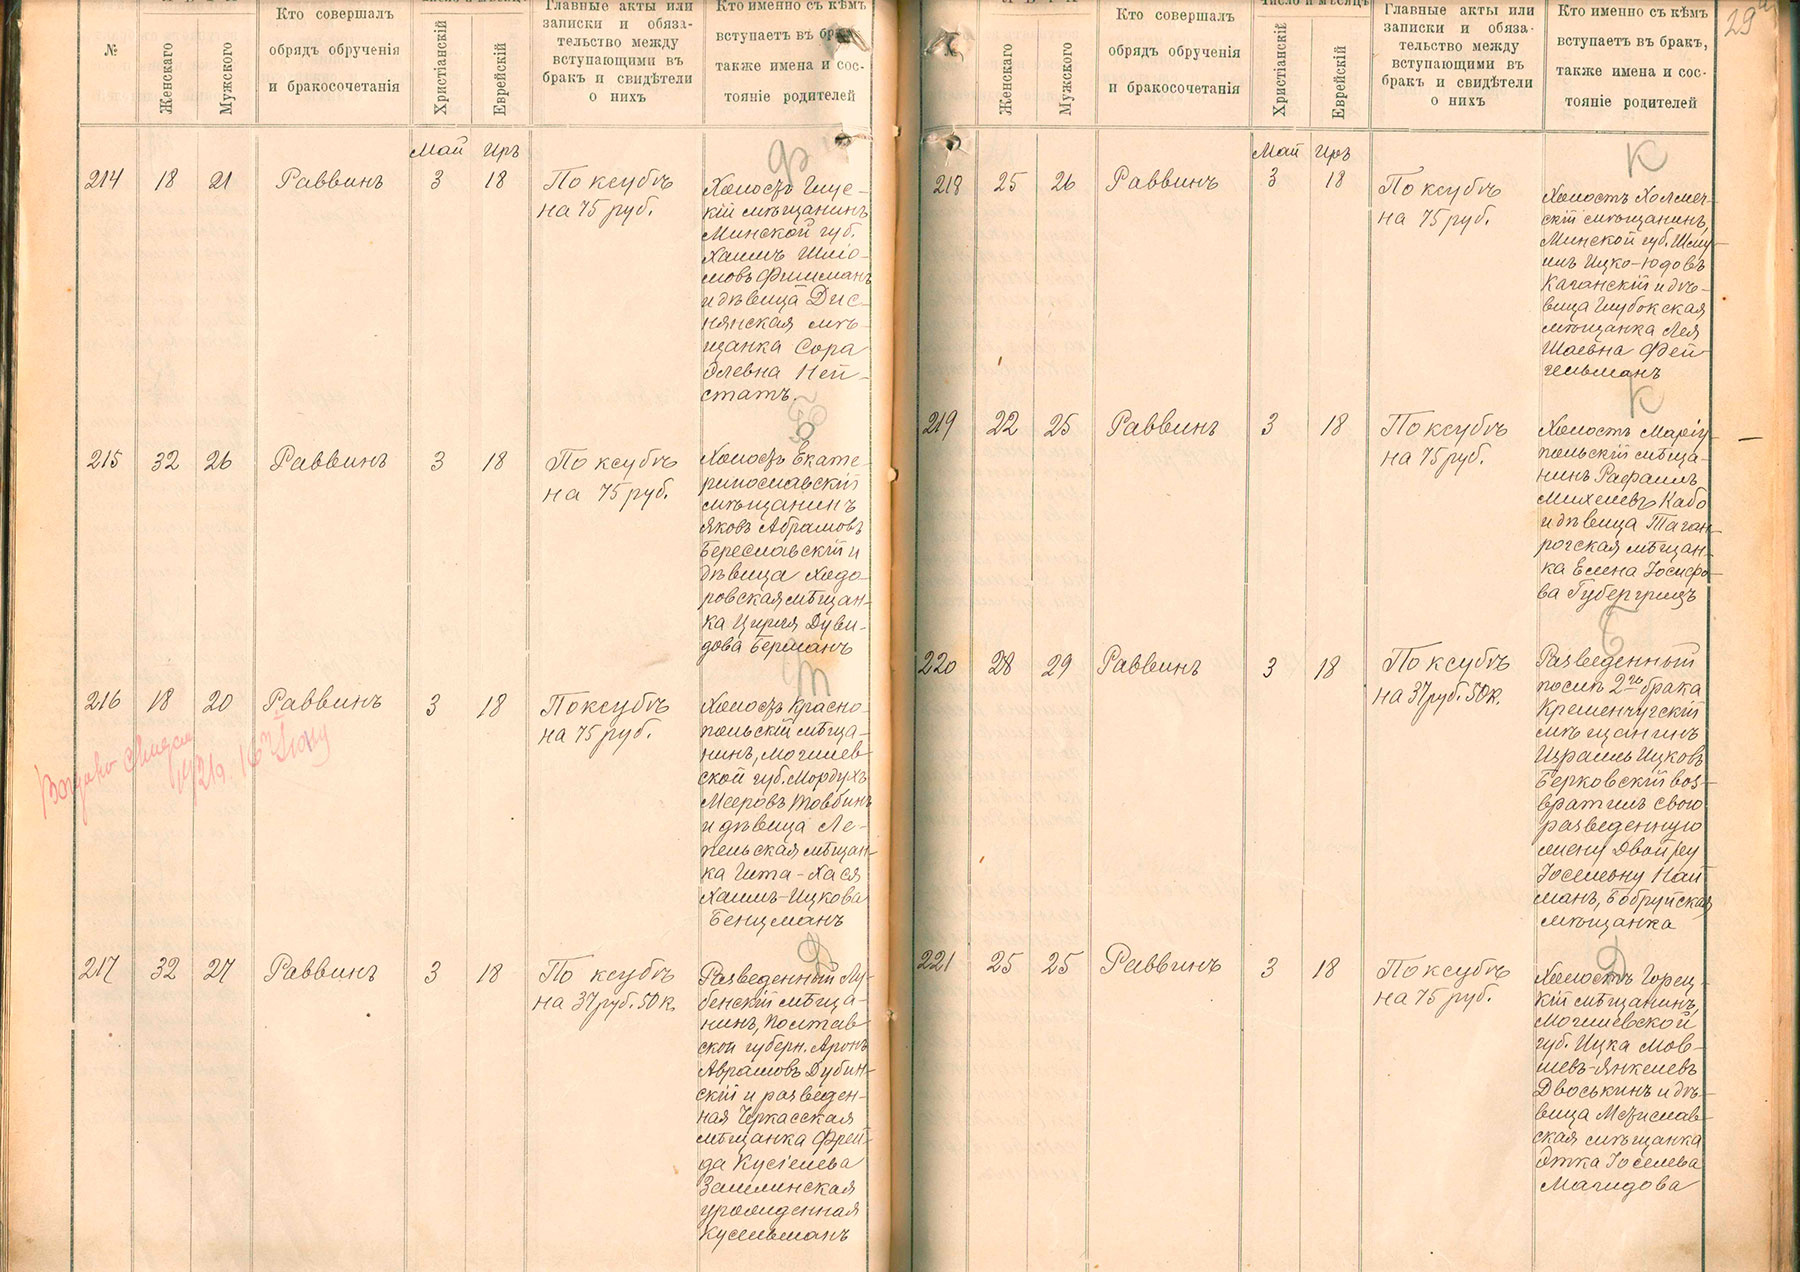 №
Женскаго
Мужского
Кто совершалъ
обрядъ обрученія
и бракосочетанія
Число и мѣсяцъ
Христіанскій
Еврейскій
Главные акты или
записки и обяза-
тельство между
вступающими въ
бракъ и свидѣтели
о нихъ
Кто именно съ кѣмъ
вступаетъ въ бракъ,
также имена и сос-
тояніе родителей
Май Иръ
Ф
214 18 21 Раввинъ 3 18
По ксубѣ
на 75 руб.
Холостъ Глус-
кій мѣщанинъ
Минской губ.
Хаимъ Шлiо-
мовъ Фишманъ
и дѣвица Дис-
нянская мѣ-
щанка Сора
Элевна Ней-
статъ.
Б
215 32 26 Раввинъ 3 18
По ксубѣ
на 75 руб.
Холостъ Екате-
ринославскій
мѣщанинъ
Яковъ Абрамовъ
Береславскій и
дѣвица Ходо-
ровская мѣщан-
ка Цирля Дуви-
дова Берманъ
Т
216 18 20 Раввинъ 3 18
По ксубѣ
на 75 руб.
Холостъ Красно-
польскій мѣща-
нинъ, Могилев-
ской губ. Мордухъ
Мееровъ Товбинъ
и дѣвица Ле-
пельская мѣщан-
ка Гита-Хася
Хаимъ-Ицкова
Бенцманъ
1921г. 16го Iюня
Д
217 32 27 Раввинъ 3 18
По ксубѣ
на 37 руб. 50 к.
Разведенный Лу-
бенскій мѣща-
нинъ, Полтав-
ской губерн. Аронъ
Аврамовъ Дубин-
скій и разведен-
ная Черкасская
мѣщанка Фрей-
да Кусіелева
Заславская
урожденная
Кусельманъ
29
№
Женскаго
Мужского
Кто совершалъ
обрядъ обрученія
и бракосочетанія
Число и мѣсяцъ
Христіанскій
Еврейскій
Главные акты или
записки и обяза-
тельство между
вступающими въ
бракъ и свидѣтели
о нихъ
Кто именно съ кѣмъ
вступаетъ въ бракъ,
также имена и сос-
тояніе родителей
Май Иръ
К
218 25 26 Раввинъ 3 18
По ксубѣ
на 75 руб.
Холостъ Холмеч-
скій мѣщанинъ,
Минской губ. Шму-
илъ Ицко-Юдовъ
Каганскій и дѣ-
вица Глубокская
мѣщанка Лея
Шаевна Фей-
гельманъ
К
219 22 25 Раввинъ 3 18
По ксубѣ
на 75 руб.
Холостъ Маріу-
польскій мѣща-
нинъ Рафаилъ
Михелевъ Кабо
и дѣвица Таган-
рогская мѣщан-
ка Елена Іосифо-
ва Губергрицъ
Б
220 28 29 Раввинъ 3 18
По ксубѣ
на 37 руб. 50 к.
Разведенный
послѣ 2го брака
Кременчугскій
мѣщанинъ
Израиль Ицковъ
Берковскій воз-
вратилъ свою
разведенную
жену Двойру
Іоселевну Най-
манъ, Бобруйская
мѣщанка
Д
221 25 25 Раввинъ 3 18
По ксубѣ
на 75 руб.
Холостъ Горец-
кій мѣщанинъ,
Могилевской
губ. Ицка Мов-
шевъ-Янкелевъ
Двоськинъ и дѣ-
вица Мстислав-
ская мѣщанка
Этка Іоселева
Магидова